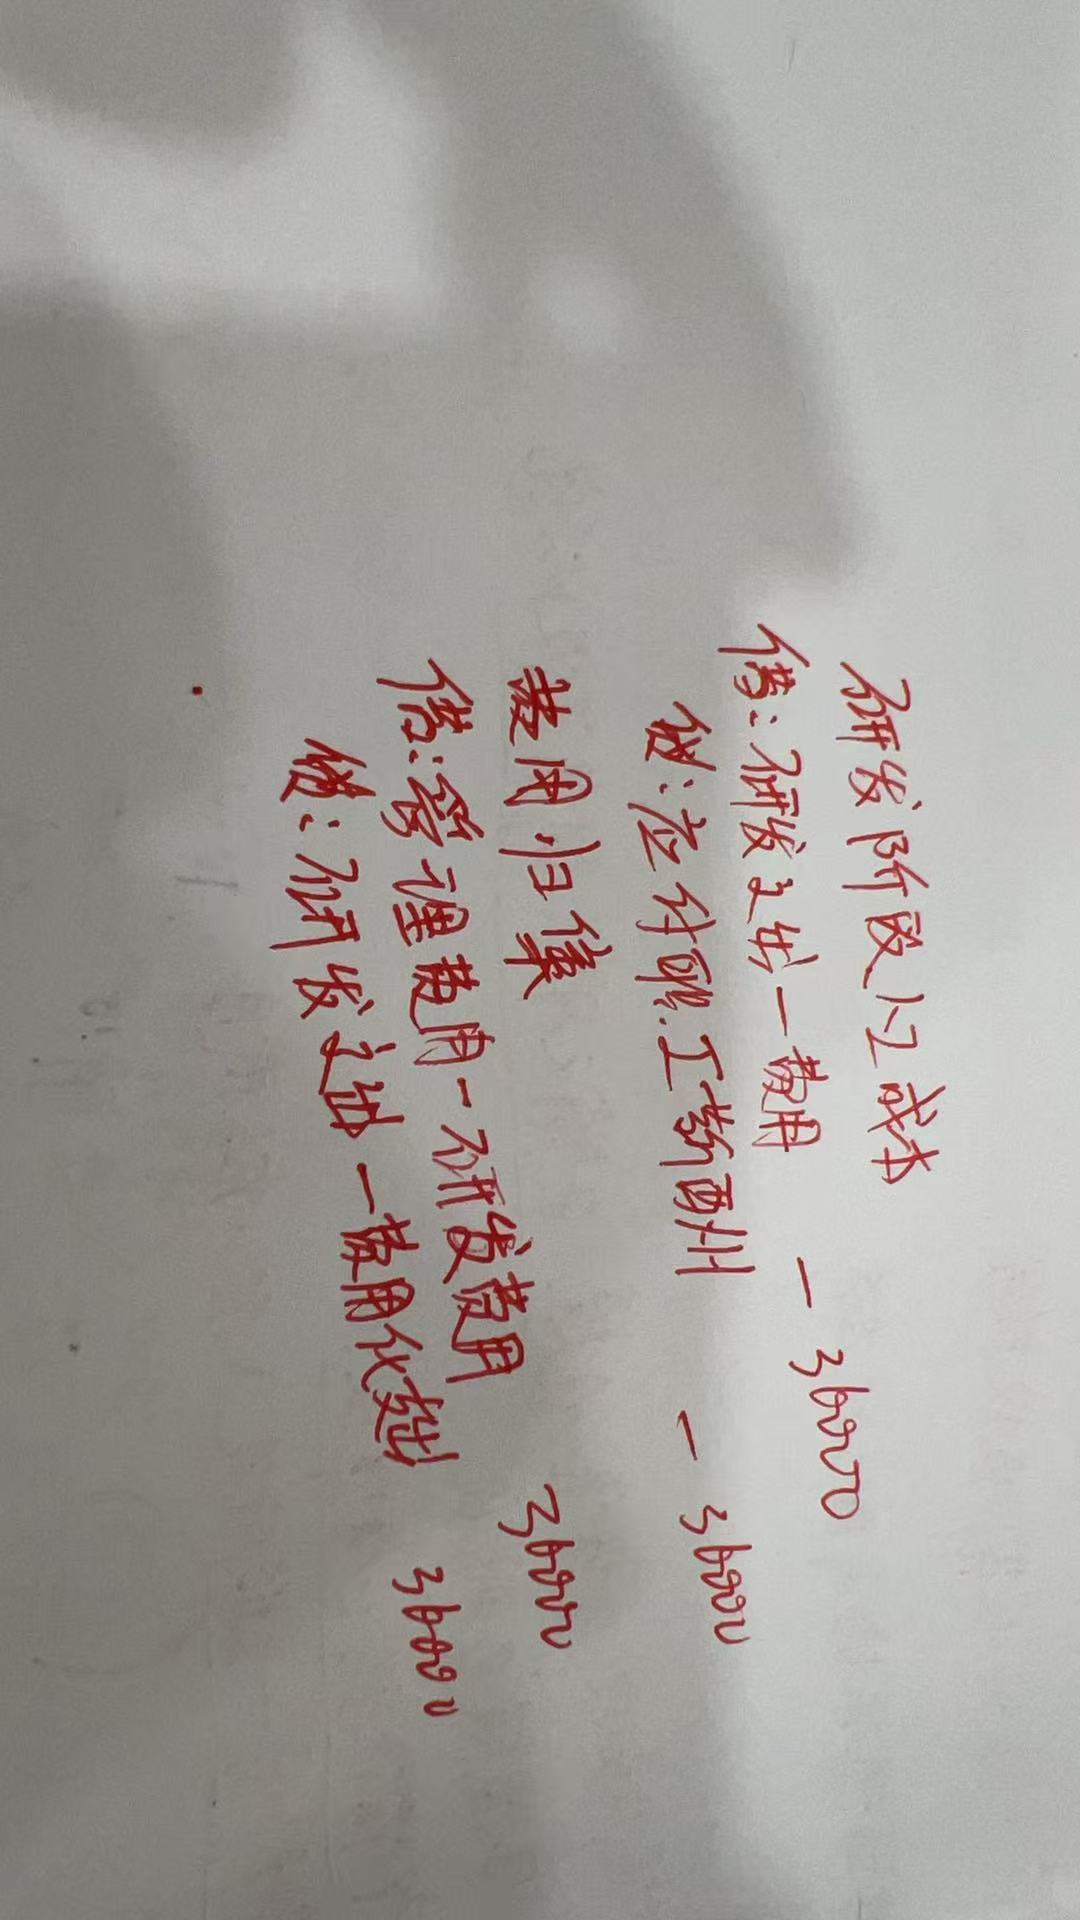 研发阶段人工成本
借：研发支出一费用 一 36000
贷：应付职工薪酬 一 36000
费用归集
借：管理费用一研发费用 36000
贷：研发支出一费用化支出 36000